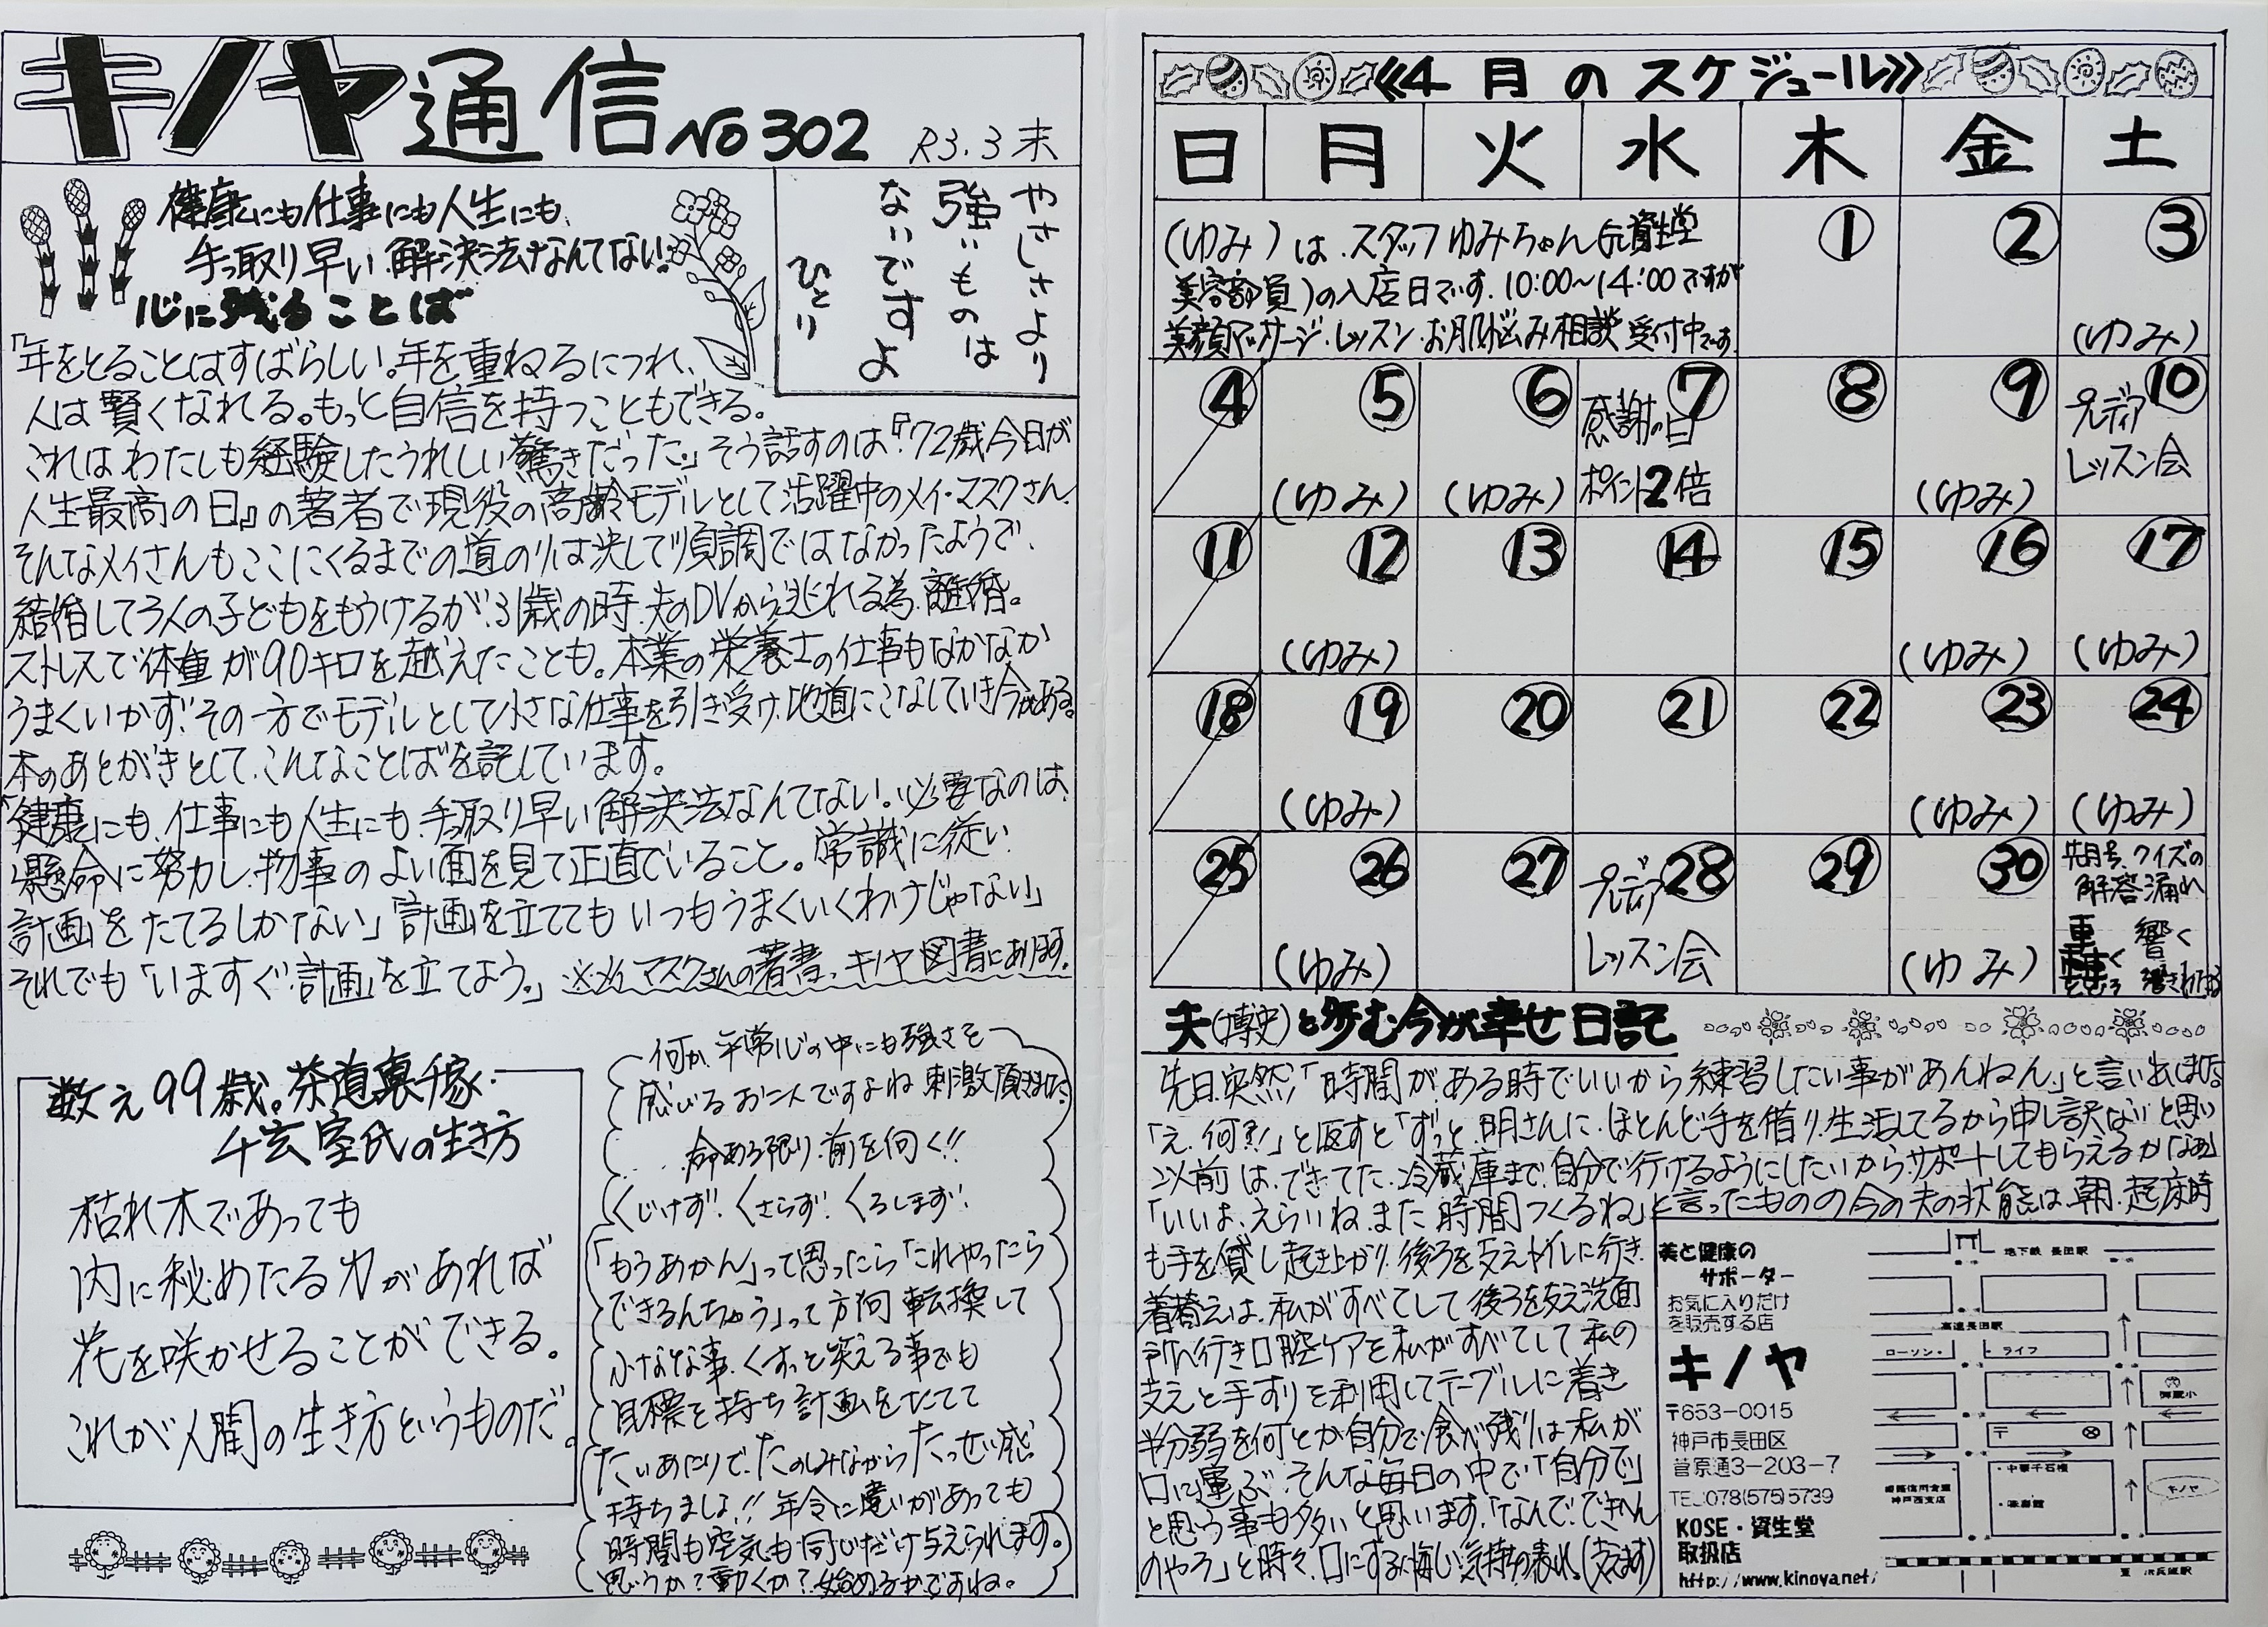 キノヤ通信 No302 R3.3末
健康にも仕事にも人生にも、
手っ取り早い解決法なんてない!
心に残ることば
やさしさより
強いものは
ないですよ
ひとり
「年をとることはすばらしい。年を重ねるにつれ、
人は賢くなれる。もっと自信を持つこともできる。
これはわたしも経験したうれしい驚きだった。」そう話すのは『72歳今日が
人生最高の日』の著者で現役の高齢モデルとして活躍中のメイ・マスクさん。
そんなメイさんもここにくるまでの道のりは決して順調ではなかったようで、
結婚して3人の子どもをもうけるが、31歳の時、夫のDVから逃れる為、離婚。
ストレスで体重が90キロを越えたことも。本業の栄養士の仕事もなかなか
うまくいかず、その一方でモデルとして小さな仕事を引き受け、地道にこなしていき今がある。
本のあとがきとして、こんなことばを記しています。
「健康にも、仕事にも人生にも、手っ取り早い解決法なんてない。必要なのは、
懸命に努力し、物事のよい面を見て正直でいること。常識に従い
計画をたてるしかない」「計画を立ててもいつもうまくいくわけじゃない」
それでも「いますぐ計画」を立てよう。」※メイ・マスクさんの著書、キノヤ図書にあります。
数え99歳。茶道裏千家
千玄室氏の生き方
枯れ木であっても
内に秘めたる力があれば
花を咲かせることができる。
これが人間の生き方というものだ。
何か、平常心の中にも強さを
感じるお二人ですよね 刺激頂きました
命ある限り、前を向く!!
くじけず! くさらず! くろしまず!
「もうあかん」って思ったら「これやったら
できるんちゃう」って方向転換して
小さな事、くすっと笑える事でも
目標を持ち計画をたてて
たいあたりで、たのしみながらたっせい感
持ちましょ!! 年令に違いがあっても
時間も空気も同じだけ与えられます。
思うか?動くか?始めるかですね。
≪4月のスケジュール≫
日 月 火 水 木 金 土
(ゆみ)は、スタッフゆみちゃん(元資生堂
美容部員)の入店日です。10:00~14:00ですが
美顔マッサージ・レッスン・お肌悩み相談 受付中です
① ② ③
(ゆみ)
④ ⑤ ⑥ ⑦ ⑧ ⑨ ⑩
感謝の日
ポイント2倍
プレディア
レッスン会
(ゆみ) (ゆみ) (ゆみ)
⑪ ⑫ ⑬ ⑭ ⑮ ⑯ ⑰
(ゆみ) (ゆみ) (ゆみ)
⑱ ⑲ ⑳ ㉑ ㉒ ㉓ ㉔
(ゆみ) (ゆみ) (ゆみ)
㉕ ㉖ ㉗ ㉘ ㉙ ㉚
プレディア
レッスン会
(ゆみ) (ゆみ)
先月号、クイズの
解答漏れ
響く
夫(博史)と歩む今が幸せ日記
先日、突然、「時間がある時でいいから練習したい事があんねん。」と言い出しました
「え、何?!」と返すと「ずっと、明さんに、ほとんど手を借り、生活してるから申し訳ないと思い
以前は、できてた、冷蔵庫まで、自分で行けるようにしたいからサポートしてもらえるかなぁ」
「いいよ、えらいね、また時間つくるね」と言ったものの今の夫の状態は、朝、起床時
も手を貸し起き上がり、後ろを支えトイレに行き、
着替えは、私がすべてして後ろを支え洗面
所へ行き口腔ケアを私がすべてして、私の
支えと手すりを利用してテーブルに着き
半分弱を何とか自分で食べ残りは私が
口に運ぶ、そんな毎日の中で、「自分で」
と思う事も多いと思います。「なんで、できへん
のやろ」と時々、口にする、悔しい気持ちの表れ。(支えます)
美と健康の
サポーター
お気に入りだけ
を販売する店
キノヤ
〒653-0015
神戸市長田区
菅原通3-203-7
TEL:078(575)5739
KOSE・資生堂
取扱店
http://www.kinoya.net/
地下鉄 長田駅
高速長田駅
ローソン・ ・ライフ
御蔵小
〒
・中華千石橋
神戸西支店
キノヤ
至 JR兵庫駅